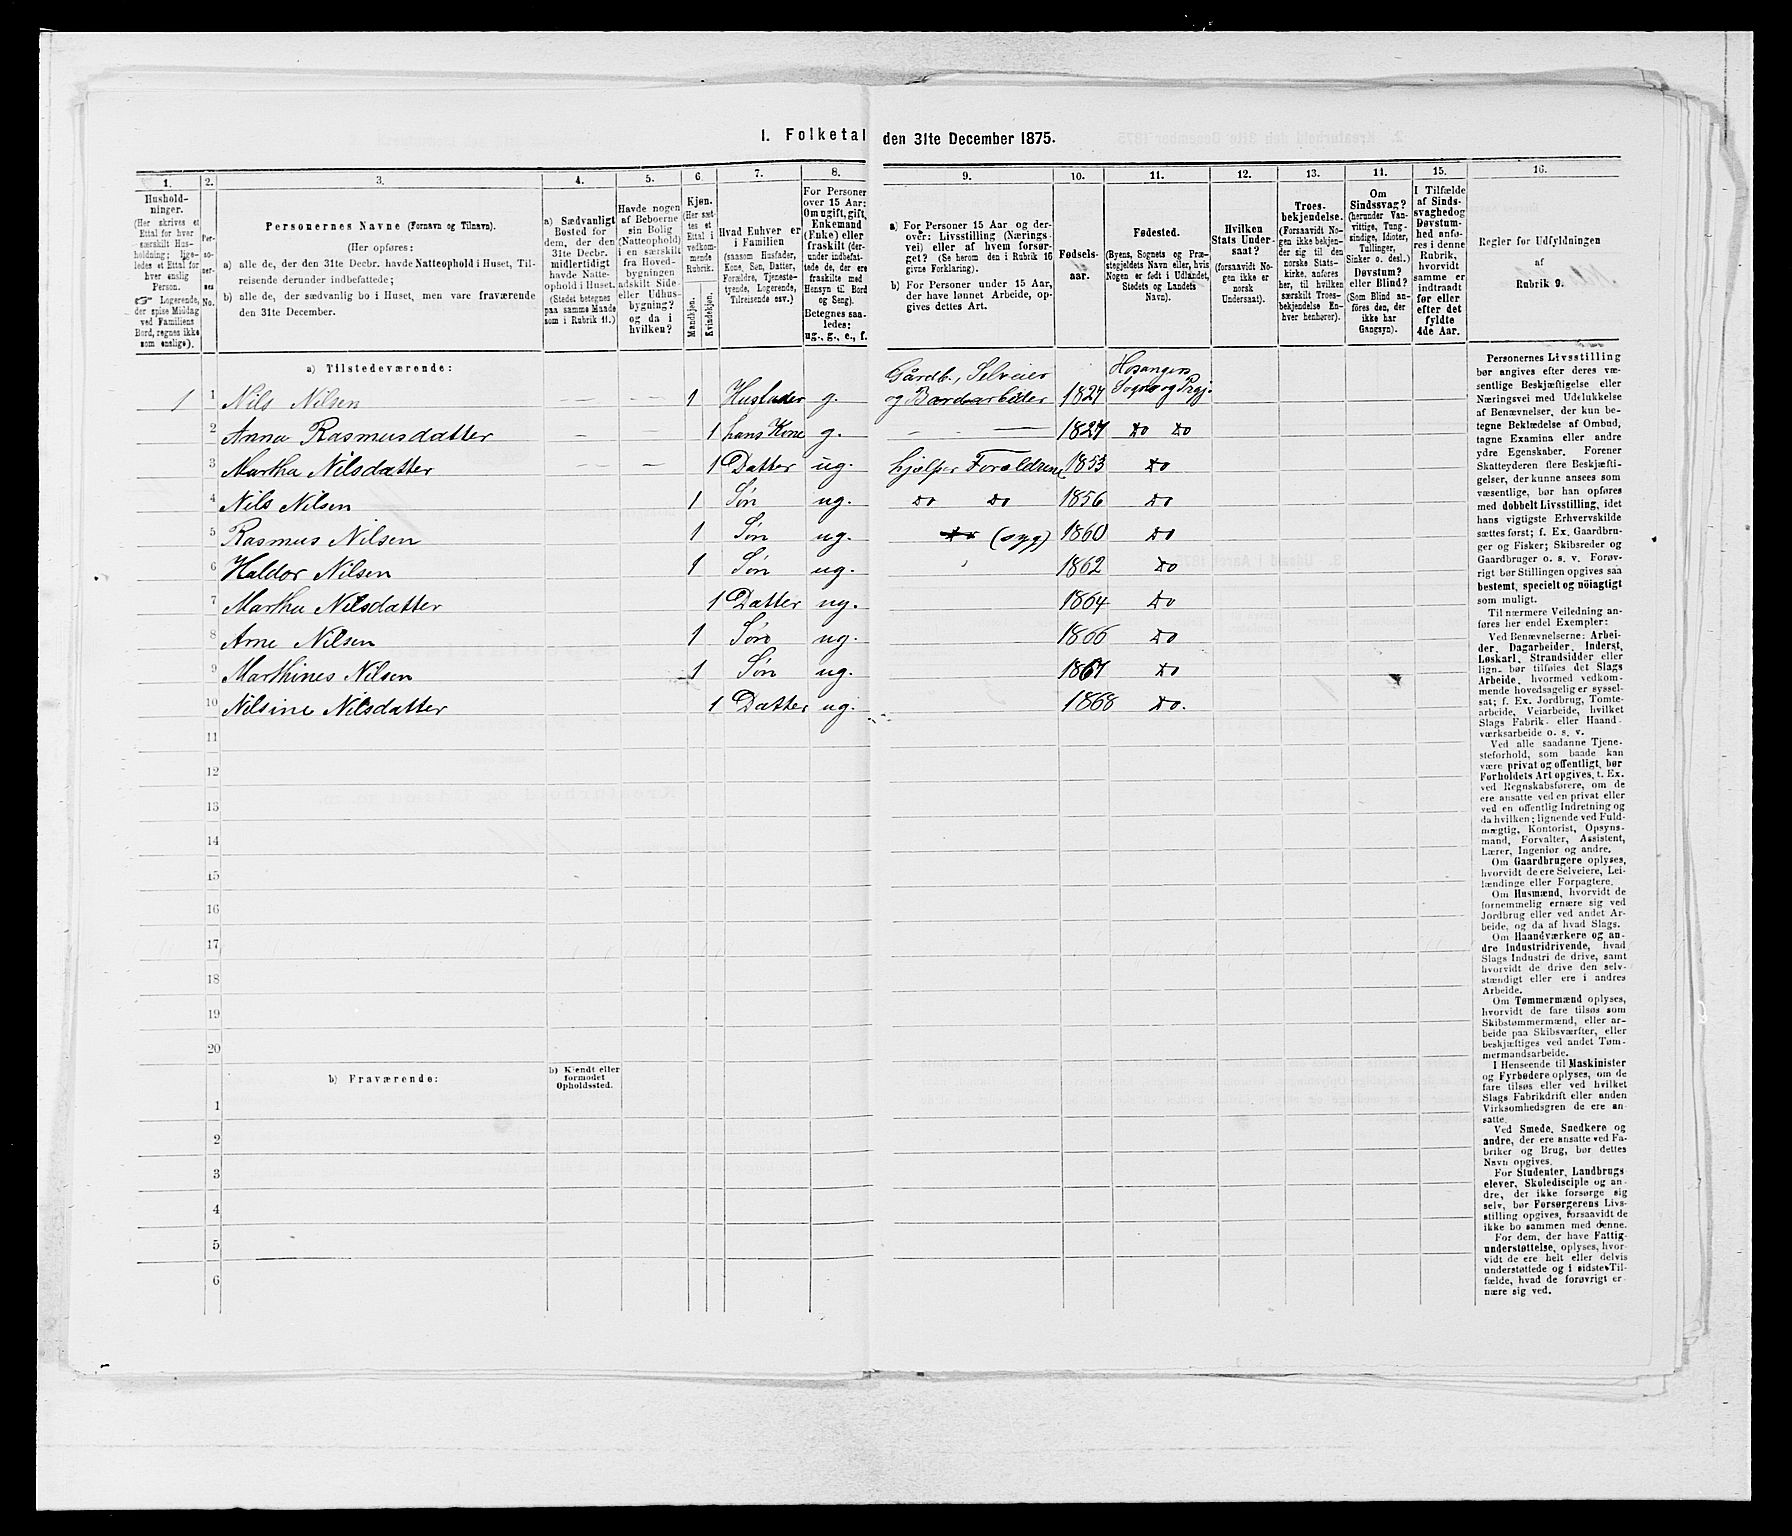 1. Folketal den 31te December 1875.
1. 2. 3. 4. 5. 6. 7. 8. 9. 10. 11. 12. 13. 14. 15. 16.
Husholdninger.
(Her skrives et
Ettal for hver
særskilt Husholdning;
ligeledes et Ettal for
hver enslig
Person.
Logerende,
der spise Middag
ved Familiens
Bord, regnes ikke
som enslige).
Personernes No.
Personernes Navne (Fornavn og Tilnavn).
(Her opføres:
a) alle de, der den 31te Decbr. havde Natteophold i Huset, Tilreisende derunder indbefattede;
b) alle de, der sædvanlig bo i Huset, men vare fraværende
den 31te December.
a) Sædvanligt
Bosted for
dem, der den
31te Decbr.
midlertidigt
havde Natteophold
i Huset.
(Stedet betegnes
paa samme Maade
som i Rubrik 11.)
Havde nogen
af Beboerne
sin Bolig
(Natteophold)
i en særskilt
fra Hovedbygningen
adskilt Side-
eller Udhusbygning?
og da i
hvilken?
Kjøn.
(Her sættes
et
Ettal i
vedkommende
Rubrik.
Mandkjøn.
Kvindekjøn.
Hvad Enhver er
i Familien
(saasom Husfader,
Kone, Søn, Datter,
Forældre, Tjenestetyende,
Logerende,
Tilreisende osv.)
For Personer
over 15 Aar:
Om ugift, gift,
Enkemand
(Enke) eller
fraskilt (derunder
indbefattede
de, der ere
fraskilte med
Hensyn til Bord
og Seng).
Betegnes saaledes:
ug., g., e., f.
a) For Personer 15 Aar og derover:
Livsstilling (Næringsvei)
eller af hvem forsørget?
(Se herom den i Rubrik 16
givne Forklaring).
b) For Personer under 15 Aar,
der have lønnet Arbeide, opgives
dettes Art.
Fødselsaar.
Fødested.
(Byens, Sognets og Præstegjeldets
Navn eller, hvis
Nogen er født i Udlandet,
Stedets og Landets
Navn).
Hvilken
Stats Undersaat?
(forsaavidt Nogen
ikke er
norsk
Undersaat).
Troesbekjendelse.
(Forsaavidt Nogen
ikke bekjender
sig til den
norske Statskirke,
anføres
her, til hvilken
særskilt Troesbekjendelse
Enhver
henhører).
Om
Sindssvag?
(herunder Vanvittige,
Tungsindige,
Idioter,
Tullinger,
Sinker o. desl.)
Døvstum?
eller Blind?
(Som Blind anføres
den, der
ikke har
Gangsyn).
I Tilfælde
af Sindssvaghed
og
Døvstumhed
anføres
i denne
Rubrik,
hvorvidt
samme er
indtraadt
før eller
efter det
fyldte
4de Aar.
Regler for Udfyldningen
af
Rubrik 9.
a) Tilstedeværende:
1 1 Nils Nilsen — — 1 Husfader g. Gårdb., Selveier og Bordarbeider 1827 Hosangers Sogn og Prgj.
2 Anna Rasmusdatter — — 1 hans Kone g. — — 1827 Do Do
3 Martha Nilsdatter — — 1 Datter ug. hjelper Foreldrene 1853 Do
4 Nils Nilsen 1 Søn ug. Do Do 1856 Do
5 Rasmus Nilsen 1 Søn ug. Do (syg) 1860 Do
6 Haldor Nilsen 1 Søn ug. 1862 Do
7 Martha Nilsdatter 1 Datter ug. 1864 Do
8 Arne Nilsen 1 Søn ug. 1866 Do
9 Marthines Nilsen 1 Søn ug. 1867 Do
10 Nilsine Nilsdatter 1 Datter ug. 1868 Do.
11
12
13
14
15
16
17
18
19
20
b) Fraværende:
b) Kjendt eller
formodet
Opholdssted.
1
2
3
4
5
6
Personernes Livsstilling
bør angives efter deres væsentlige
Beskjæftigelse eller
Næringsvei med Udelukkelse
af Benævnelser, der kun betegne
Beklædelse af Ombud,
tagne Examina eller andre
ydre Egenskaber. Forener
Skatteyderen flere Beskjæftigelser,
der kunne ansees som
væsentlige, bør han opføres
med dobbelt Livsstilling, idet
hans vigtigste Erhvervskilde
sættes først; f. Ex. Gaardbruger
og Fisker; Skibsreder og
Gaardbruger o. s. v. Forøvrigt
bør Stillingen opgives saa
bestemt, specielt og nøiagtigt
som muligt.
Til nærmere Veiledning anføres
her endel Exempler:
Ved Benævnelserne: Arbeider,
Dagarbeider, Inderst,
Løskarl, Strandsidder eller
lign. bør tilføies det Slags
Arbeide, hvormed vedkommende
hovedsagelig er sysselsat;
f. Ex. Jordbrug, Tomtearbeide,
Veiarbeide, hvilket
Slags Fabrik- eller Haandværksarbeide
o. s. v.
Ved alle saadanne Tjenesteforhold,
som baade kan
være privat og offentligt, bør
Forholdets Art opgives, t. Ex.
ved Regnskabsførere, om de
ere ansatte ved en privat eller
ved en offentlig Indretning og
da hvilken; lignende ved Fuldmægtig,
Kontorist, Opsynsmand,
Forvalter, Assistent,
Lærer, Ingeniør og andre.
Om Gaardbrugere oplyses,
hvorvidt de ere Selveiere, Leilændinge
eller Forpagtere.
Om Husmænd, hvorvidt de
fornemmelig ernære sig ved
Jordbrug eller ved andet Arbeide,
og da af hvad Slags.
Om Haandværkere og andre
Industridrivende, hvad
Slags Industri de drive, samt
hvorvidt de drive den selvstændigt
eller ere i andres
Arbeide.
Om Tømmermænd oplyses,
hvorvidt de fare tilsøs som
Skibstømmermænd, eller arbeide
paa Skibsværfter, eller
beskjæftiges ved andet Tømmermandsarbeide.
I Henseende til Maskinister
og Fyrbødere oplyses, om de
fare tilsøs eller ved hvilket
Slags Fabrikdrift eller anden
Virksomhedsgren de ere ansatte.
Ved Smede, Snedkere og
andre, der ere ansatte ved Fabriker
og Brug, bør dettes
Navn opgives.
For Studenter, Landbrugselever,
Skoledisciple og andre,
der ikke forsørge sig
selv, bør Forsørgerens Livsstilling
opgives, forsaavidt de
ikke bo sammen med denne.
For dem, der have Fattigunderstøttelse,
oplyses, hvorvidt
de ere helt eller delvis
understøttede og i sidste Tilfælde,
hvad de forøvrigt ernære
sig ved.